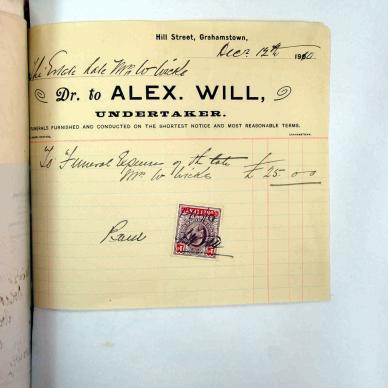 Hill Street, Grahamstown,
Decr 12th 1900
The Estate late Mr W Wicks
Dr. to ALEX. WILL,
UNDERTAKER.
FUNERALS FURNISHED AND CONDUCTED ON THE SHORTEST NOTICE AND MOST REASONABLE TERMS.
To Funeral Expenses of the late £
Mr W Wicks £ 25-0-0
Paid